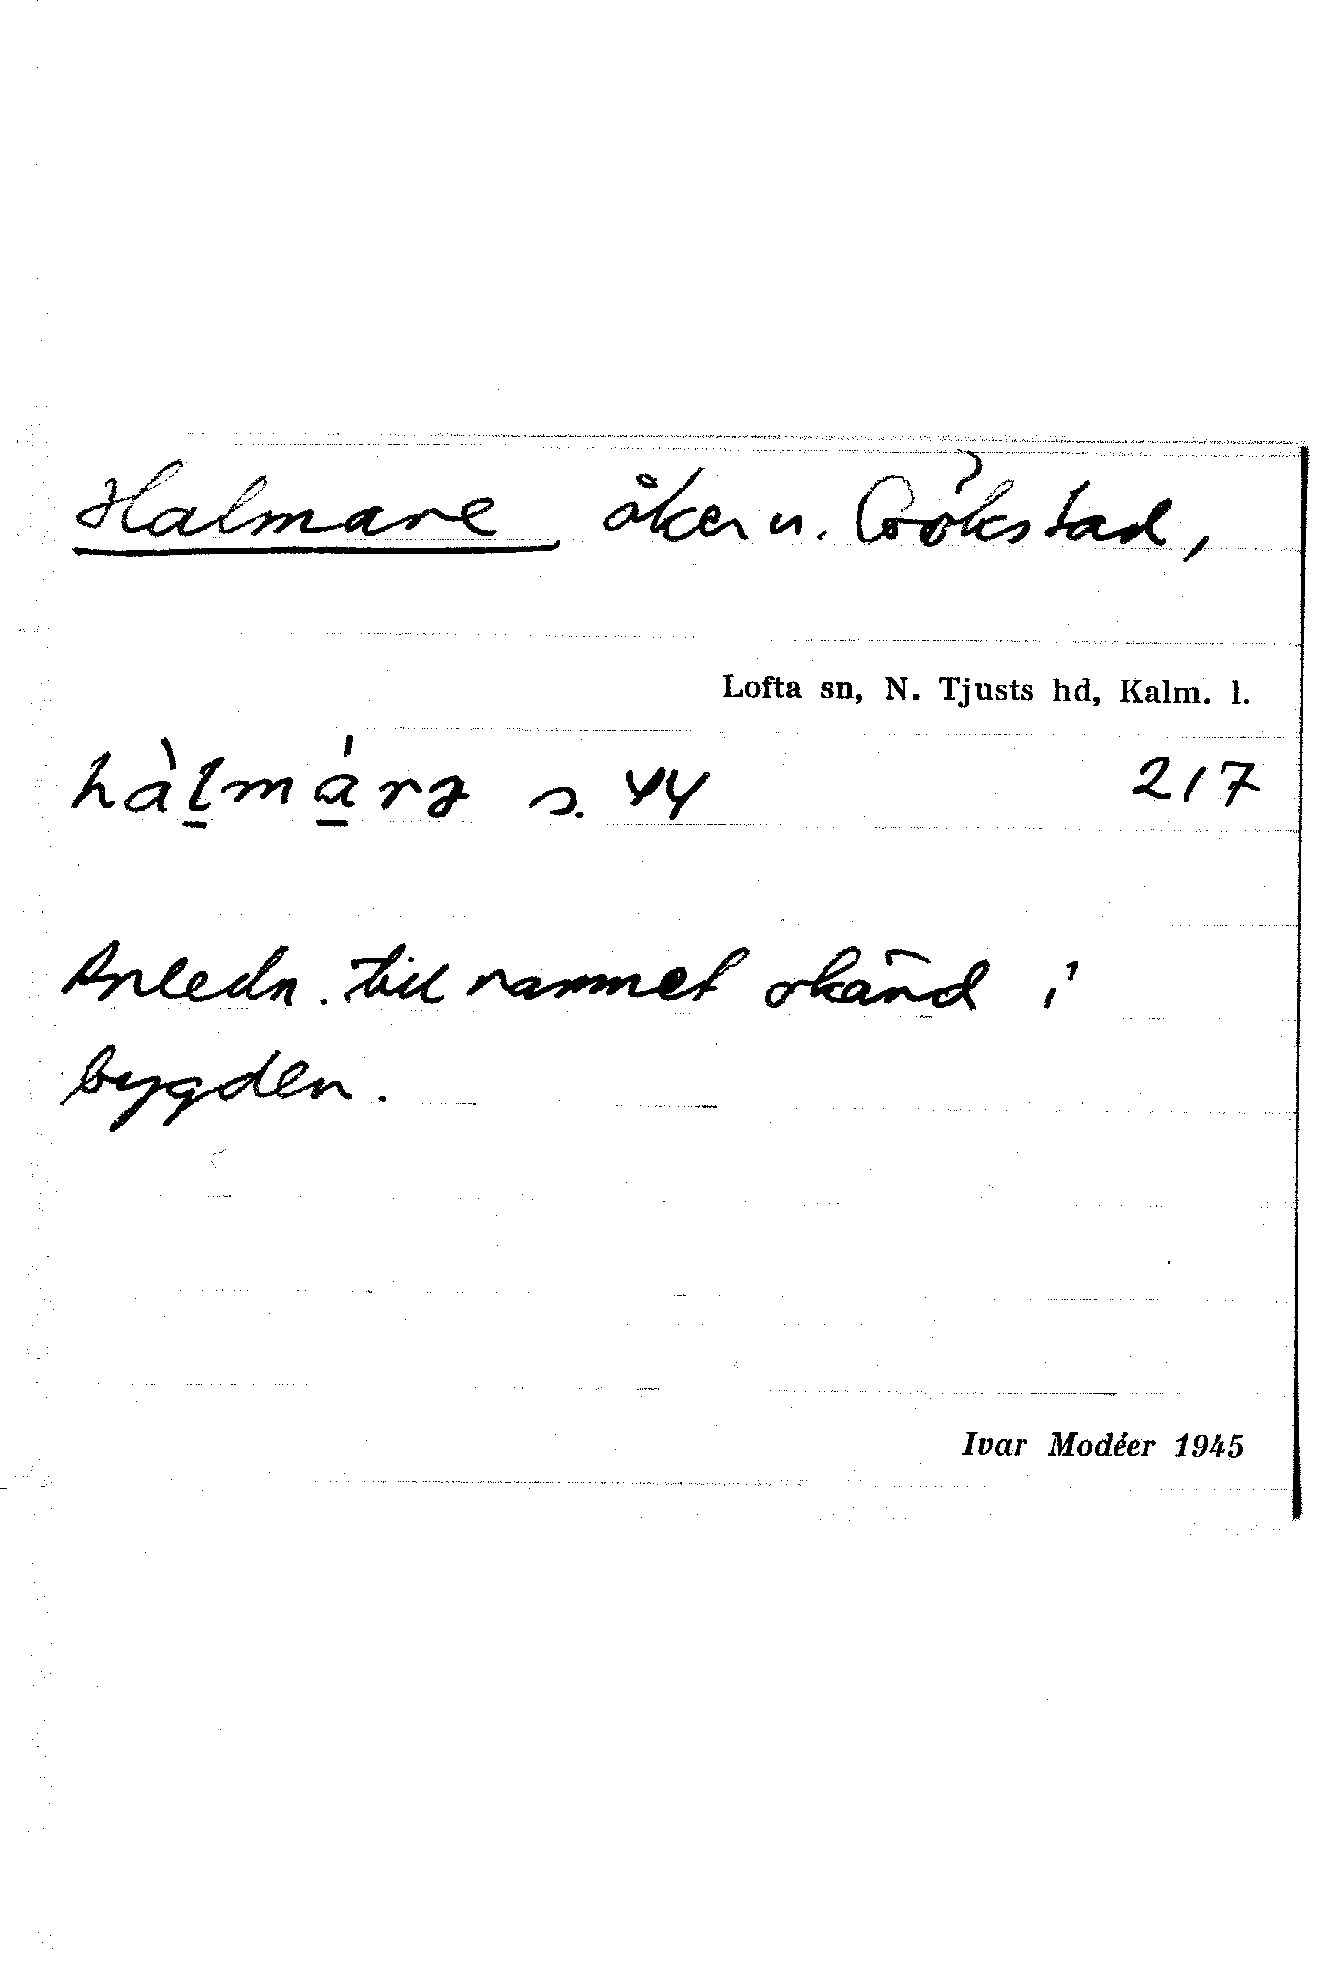 Halmare, åker u. Gökstad,
Lofta sn, N. Tjusts hd, Kalm. l.
hàl̲má̲rə s. 44 217
Anledn. till namnet okänd i
bygden.
Ivar Modéer 1945